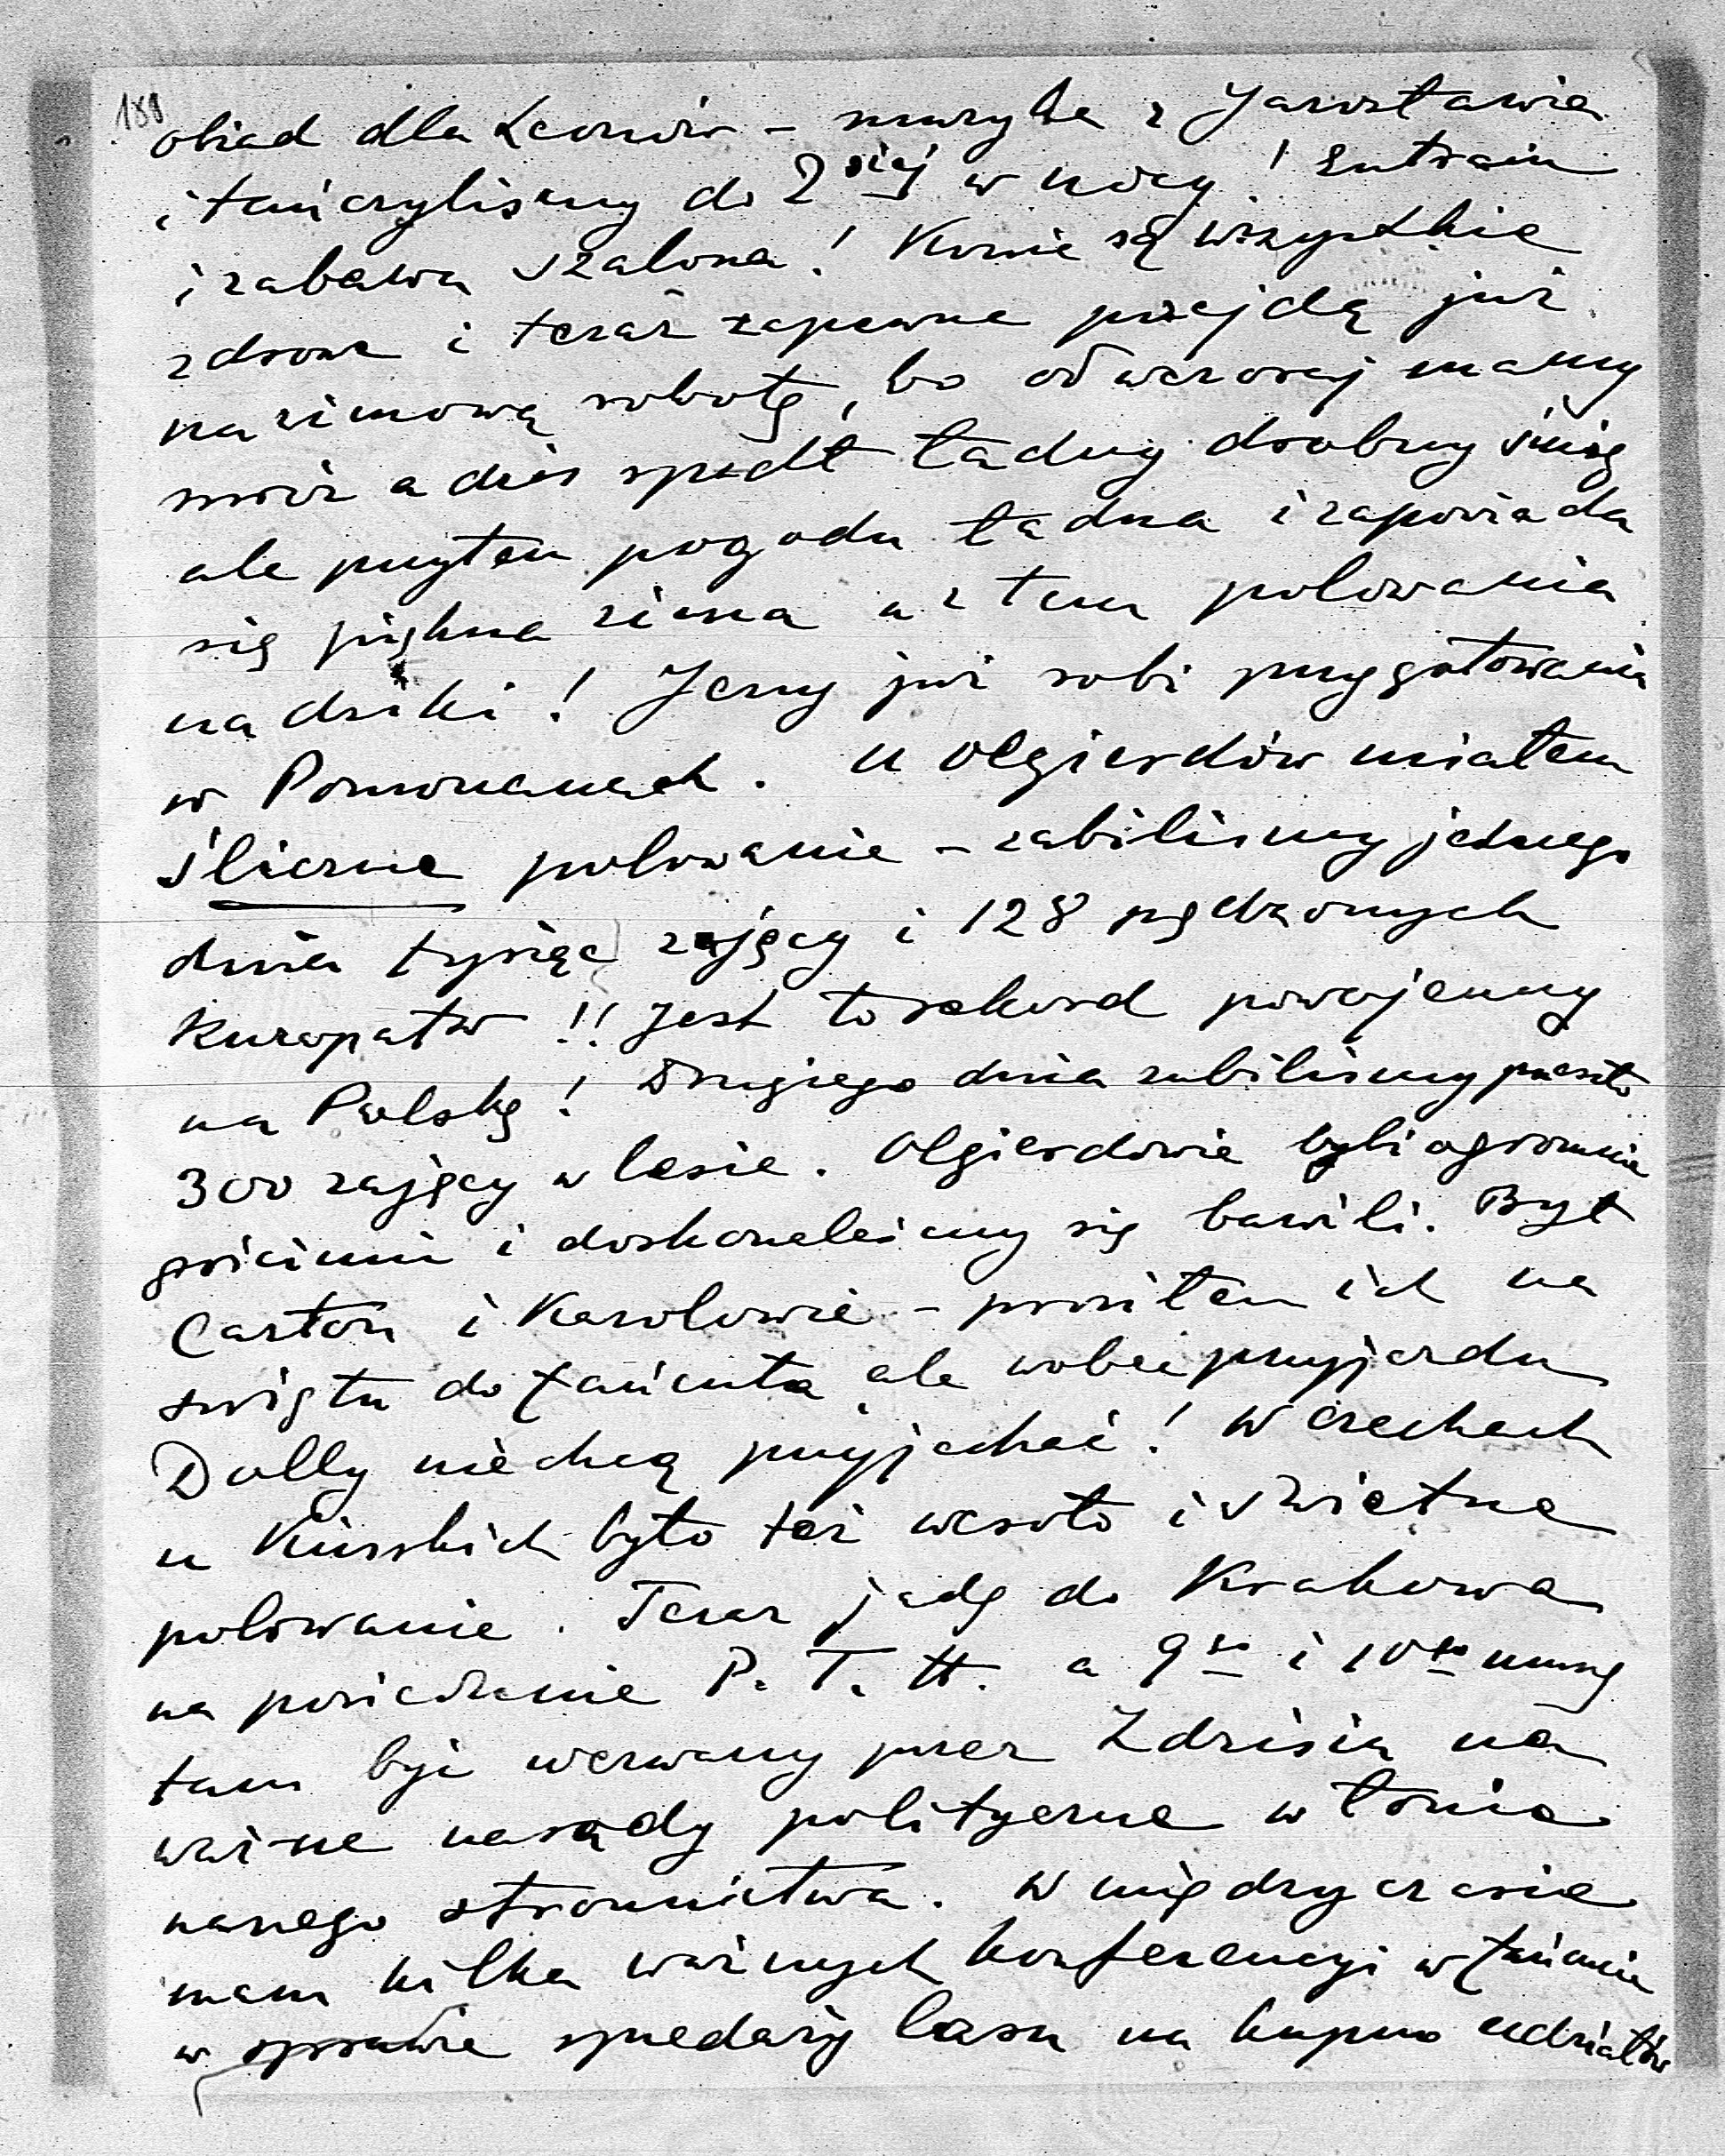 188
obiad dla Leonów – muzyka z Jarosławia
i tańczyliśmy do 2giej w nocy! Entrain
i zabawa szalona! Konie są wszystkie
zdrowe i teraz zapewne przejdą już
na zimową robotę, bo od wczoraj mamy
mróz a dziś spadł ładny drobny śnieg
ale przytem pogoda ładna i zapowiada
się piękna zima a z tem polowania
na dziki! Jerzy już robi przygotowania
w Pomorzanach. U Olgierdów miałem
śliczne polowanie – zabiliśmy jednego
dnia tysiąc zajęcy i 128 pędzonych
kuropatw!! Jest to rekord powojenny
na Polskę! Drugiego dnia zabiliśmy przeszło
300 zajęcy w lesie. Olgierdowie byli ogromnie
gościnni i doskonaleśmy się bawili. Był
Carton i Karolowie – prosiłem ich na
święta do Łańcuta ale wobec przyjazdu
Dolly nie chcą przyjechać! W Czechach
u Kinskich było też wesoło i świetne
polowanie. Teraz jadę do Krakowa
na posiedzenie P. T. H. a 9go i 10go muszę
tam być wezwany przez Zdzisia na
ważne narady polityczne w łonie
naszego stronnictwa. W międzyczasie
mam kilka ważnych konferencyi w Łańcucie
w sprawie sprzedaży lasu na kupno udziałów